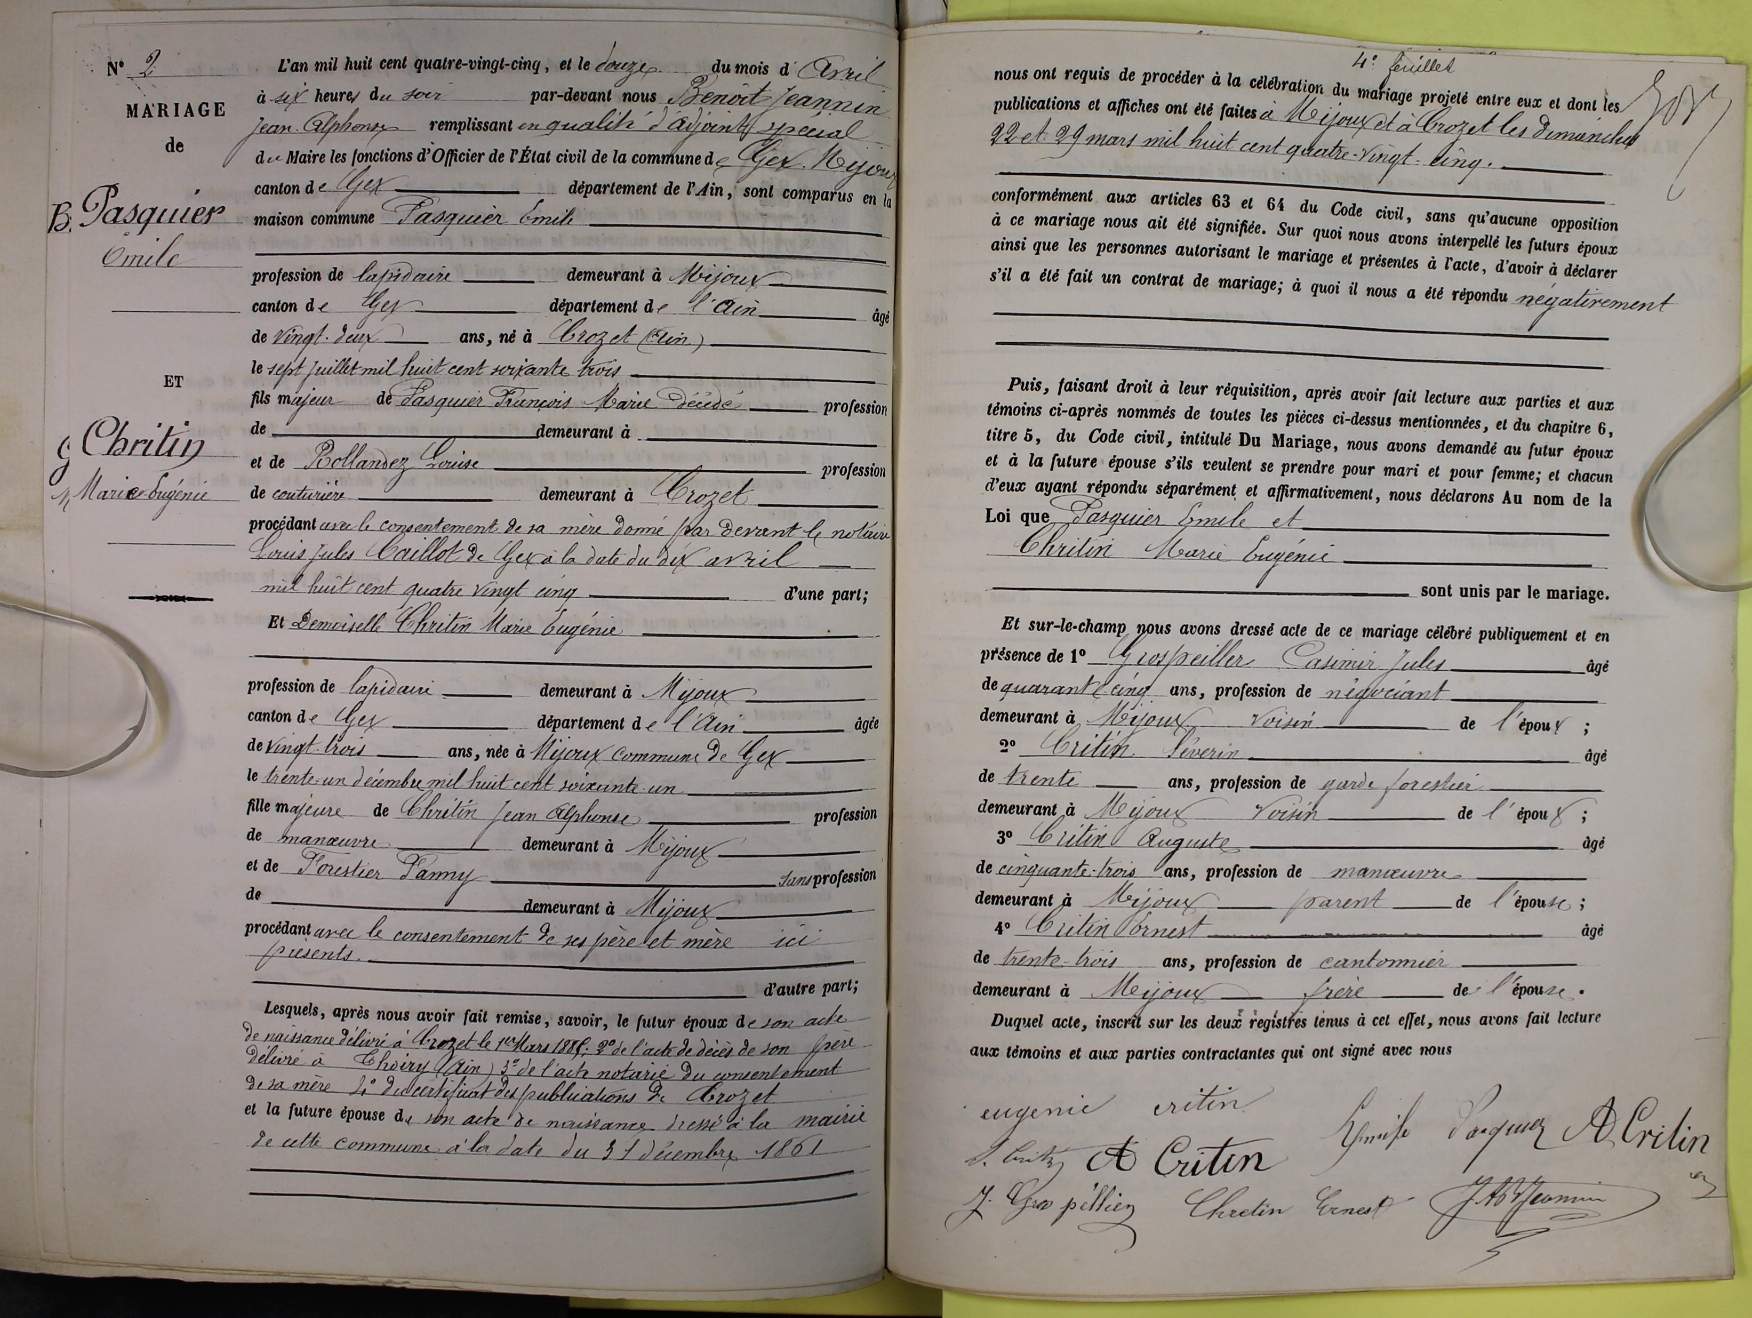 N° 2
MARIAGE
de
B. Pasquier
Emile
ET
G Chritin
Marie Eugénie
L'an mil huit cent quatre-vingt-cinq, et le douze du mois d'Avril
à six heures du soir par-devant nous Benoit Jeannin
Jean Alphonse remplissant en qualité d'adjoint spécial
du Maire les fonctions d'Officier de l'État civil de la commune de Gex-Mijoux
canton de Gex département de l'Ain, sont comparus en la
maison commune Pasquier Emile
profession de lapidaire demeurant à Mijoux
canton de Gex département de l'Ain âgé
de vingt-deux ans, né à Crozet (Ain)
le sept juillet mil huit cent soixante trois
fils majeur de Pasquier François Marie Décédé profession
de demeurant à
et de Rollandez Louise profession
de couturière demeurant à Crozet
procédant avec le consentement de sa mère donné par devant le notaire
Louis Jules Caillot de Gex à la date du dix avril
mil huit cent quatre vingt cinq d'une part;
Et Demoiselle Chritin Marie Eugénie
profession de lapidaire demeurant à Mijoux
canton de Gex département de l'Ain âgée
de vingt-trois ans, née à Mijoux commune de Gex
le trente-un décembre mil huit cent soixante-un
fille majeure de Chritin Jean Alphonse profession
de manœuvre demeurant à Mijoux
et de Forestier Fanny sans profession
de demeurant à Mijoux
procédant avec le consentement de ses père et mère ici
présents.
d'autre part;
Lesquels, après nous avoir fait remise, savoir, le futur époux de son acte
de naissance délivré à Crozet le 1er Mars 2° de l'acte de décès de son père
délivré à Thoiry (Ain) 3° de l'acte notarié du consentement
de sa mère 4° du certificat des publications de Crozet
et la future épouse de son acte de naissance dressé à la mairie
de cette commune à la date du 31 décembre 1861
4e feuillet
nous ont requis de procéder à la célébration du mariage projeté entre eux et dont les
publications et affiches ont été faites à Mijoux et à Crozet les dimanches
22 et 29 mars mil huit cent quatre-vingt-cinq.
conformément aux articles 63 et 64 du Code civil, sans qu'aucune opposition
à ce mariage nous ait été signifiée. Sur quoi nous avons interpellé les futurs époux
ainsi que les personnes autorisant le mariage et présentes à l'acte, d'avoir à déclarer
s'il a été fait un contrat de mariage; à quoi il nous a été répondu négativement
Puis, faisant droit à leur réquisition, après avoir fait lecture aux parties et aux
témoins ci-après nommés de toutes les pièces ci-dessus mentionnées, et du chapitre 6,
titre 5, du Code civil, intitulé Du Mariage, nous avons demandé au futur époux
et à la future épouse s'ils veulent se prendre pour mari et pour femme; et chacun
d'eux ayant répondu séparément et affirmativement, nous déclarons Au nom de la
Loi que Pasquier Emile et
Chritin Marie Eugénie
sont unis par le mariage.
Et sur-le-champ nous avons dressé acte de ce mariage célébré publiquement et en
présence de 1° Grospeiller Casimir Jules âgé
de quarante cinq ans, profession de négociant
demeurant à Mijoux voisin de l'époux;
2° Critin Séverin âgé
de trente ans, profession de garde forestier
demeurant à Mijoux voisin de l'époux;
3° Critin Auguste âgé
de cinquante-trois ans, profession de manœuvre
demeurant à Mijoux parent de l'épouse;
4° Critin Ernest âgé
de trente-trois ans, profession de cantonnier
demeurant à Mijoux frère de l'épouse.
Duquel acte, inscrit sur les deux registres tenus à cet effet, nous avons fait lecture
aux témoins et aux parties contractantes qui ont signé avec nous
eugenie critin Emile Pasquier A Critin
A Critin
J. Grospillier Chretin Ernest J A B Jeannin